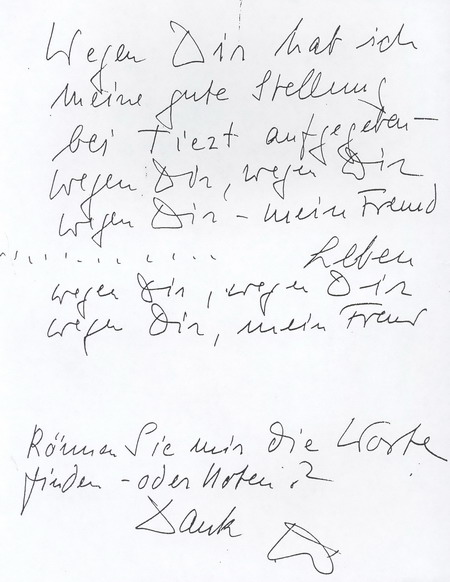 Wegen Dir hat ich
meine gute Stellung
bei Tiezt aufgegeben –
wegen Dir, wegen Dir
wegen Dir – mein Freund
. . . . . . . . . . . Leben
wegen Dir, wegen Dir
wegen Dir, mein Freund
Können Sie mir die Worte
finden – oder Noten?
Dank